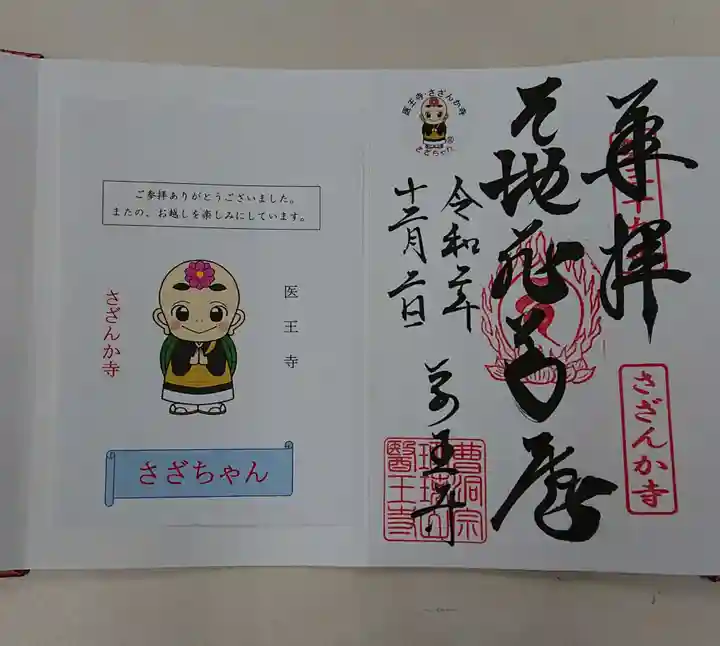 ご参拝ありがとうございました。
またの、お越しを楽しみにしています。
医王寺
さざんか寺
さざちゃん
奉拝
さざんか寺
地蔵尊
医王寺・さざんか寺
さざちゃん
令和二年
十二月二日
医王寺
曹洞宗
瑠璃山
醫王寺